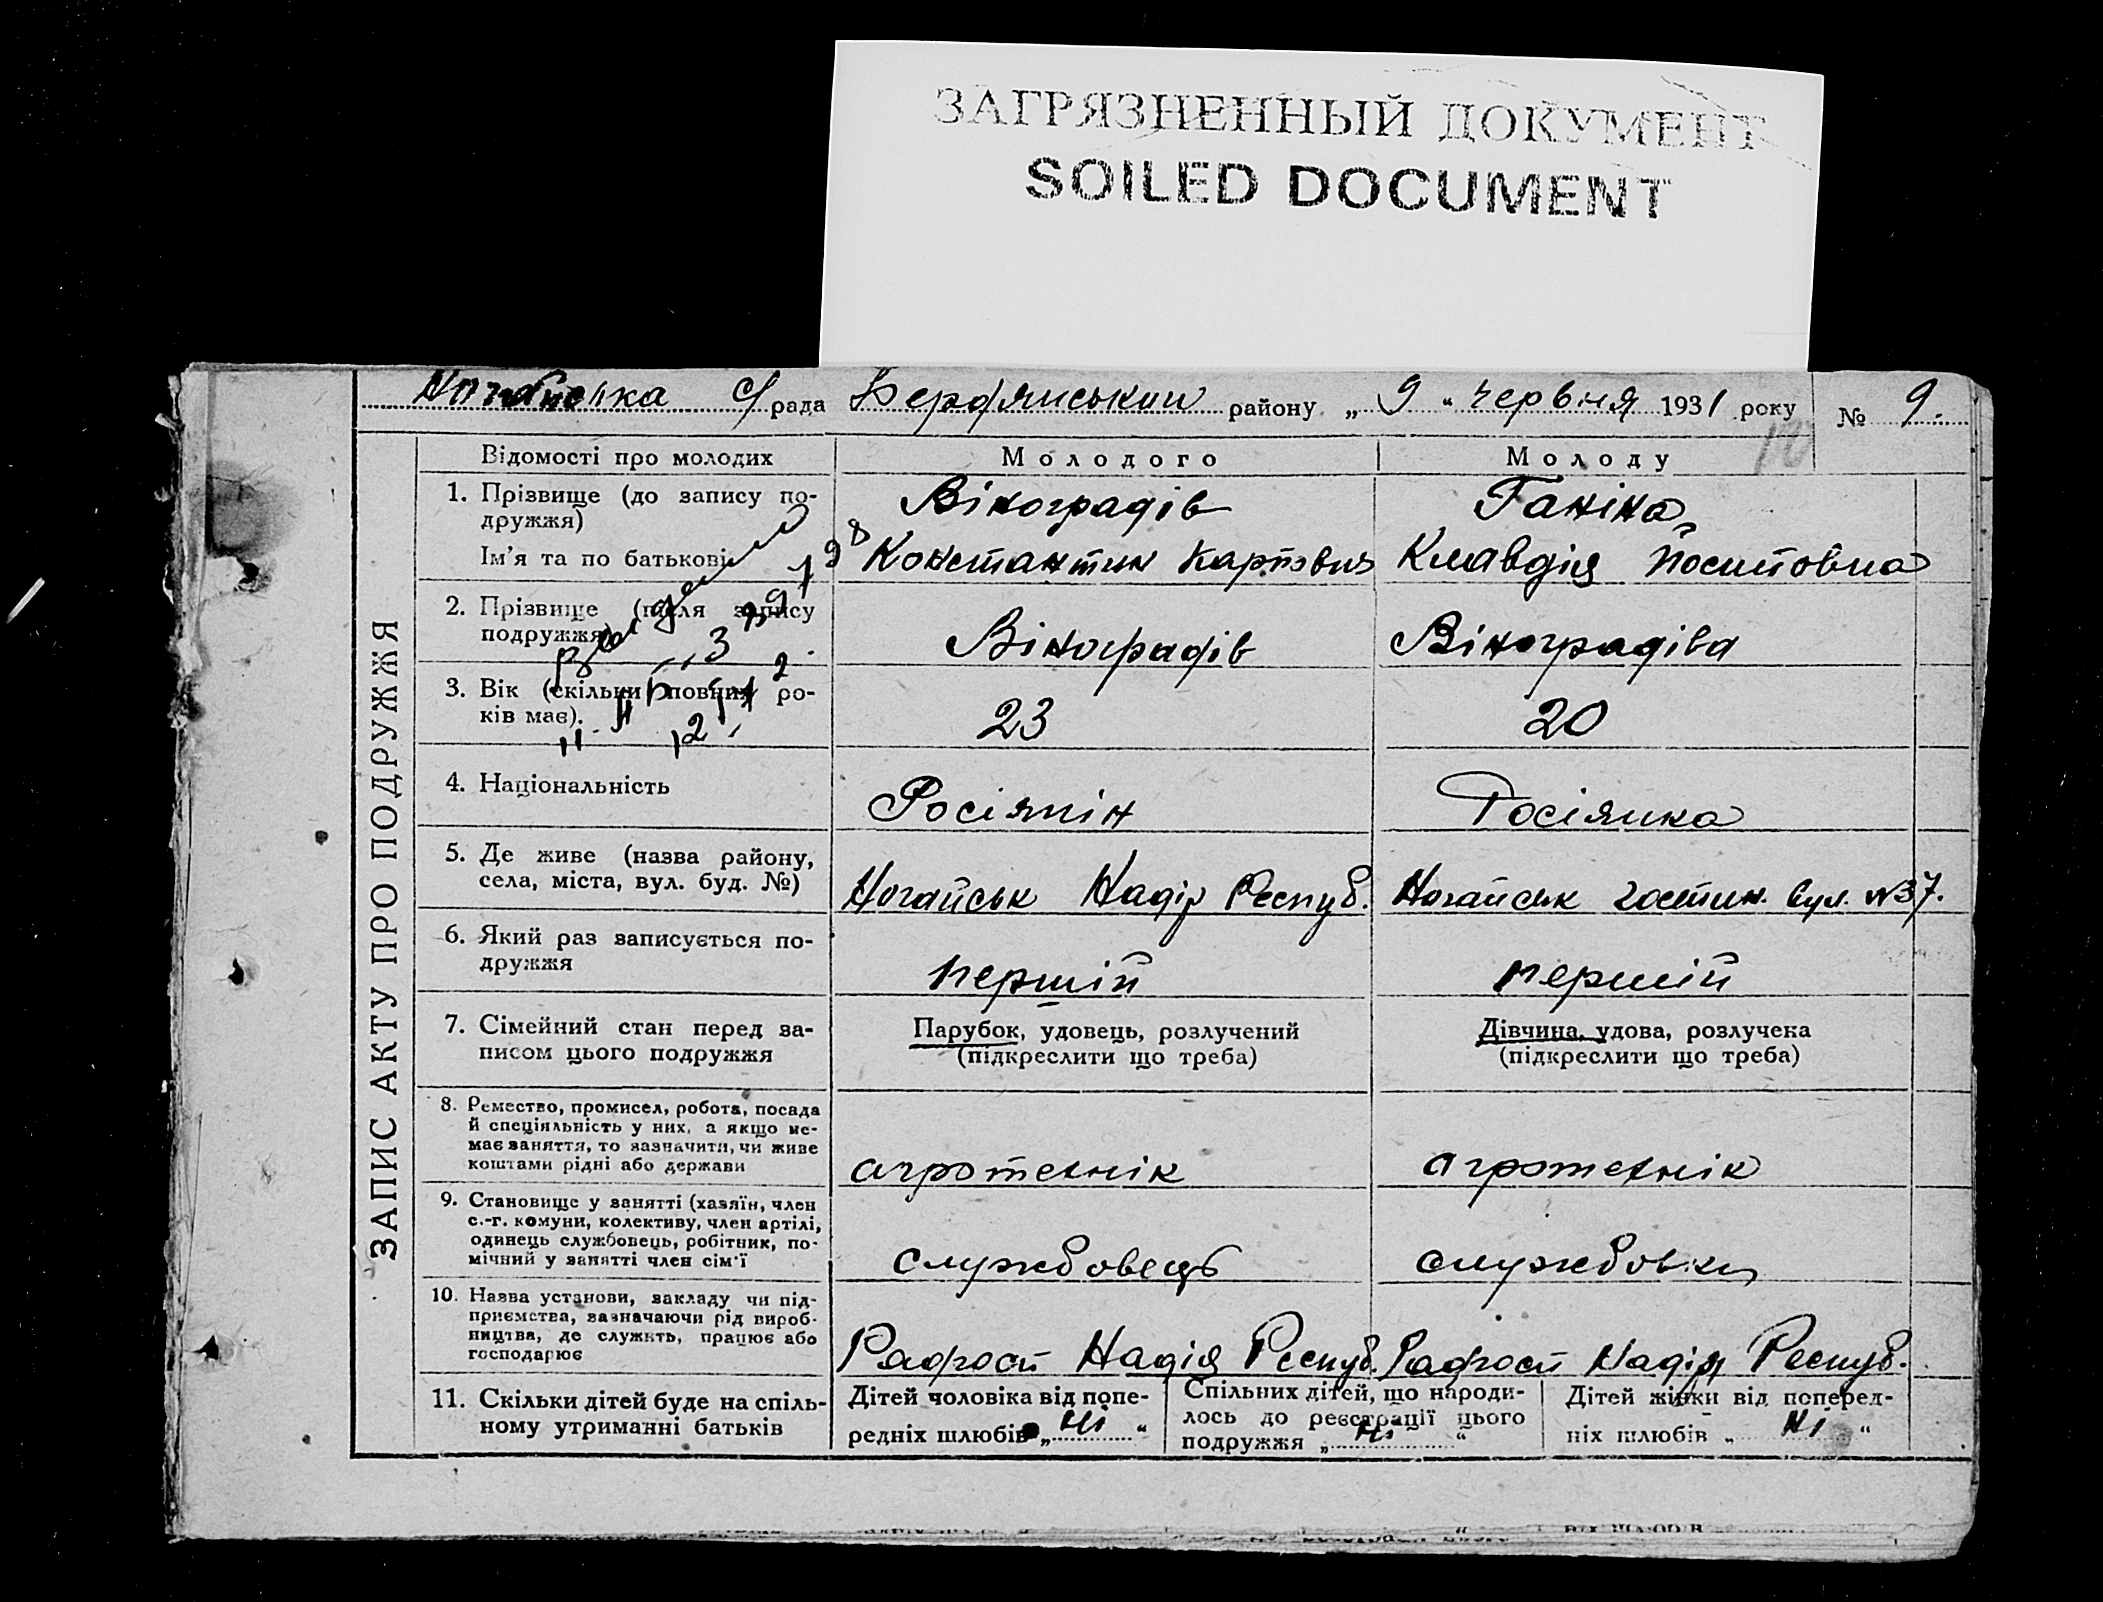 ЗАГРЯЗНЕННЫЙ ДОКУМЕНТ
SOILED DOCUMENT
с/рада Бердянський району „9“ червня 1931 року № 9.
ЗАПИС АКТУ ПРО ПОДРУЖЖЯ
Відомості про молодих Молодого Молоду
1. Прізвище (до запису по-
дружжя) Віноградів Ганіна
Ім'я та по батькові Константин Карпович Клавдія
2. Прізвище (після запису
подружжя) Віноградів Віноградіва
3. Вік (скільки повних ро-
ків має). 23 20
4. Національність Росіянін Росіянка
5. Де живе (назва району,
села, міста, вул. буд. №) Ногайськ Надія Респуб. Ногайськ гостин. вул. №37.
6. Який раз записується по-
дружжя першій першій
7. Сімейний стан перед за-
писом цього подружжя
Парубок, удовець, розлучений
(підкреслити що треба)
Дівчина, удова, розлучена
(підкреслити що треба)
8. Ремество, промисел, робота, посада
й спеціяльність у них, а якщо не-
має заняття, то зазначити, чи живе
коштами рідні або держави агротехнік агротехнік
9. Становище у занятті (хазяїн, член
с.-г. комуни, колективу, член артілі,
одинець службовець, робітник, по-
мічний у занятті член сім'ї службовець
10. Назва установи, закладу чи під-
приємства, зазначаючи рід вироб-
ництва, де служить, працює або
господарює Радгосп Надія Респуб. Радгосп Надія Респуб.
11. Скільки дітей буде на спіль-
ному утриманні батьків
Дітей чоловіка від попе-
редніх шлюбів „ні“
Спільних дітей, що народи-
лось до реєстрації цього
подружжя „ні“
Дітей жінки від поперед-
ніх шлюбів „ні“